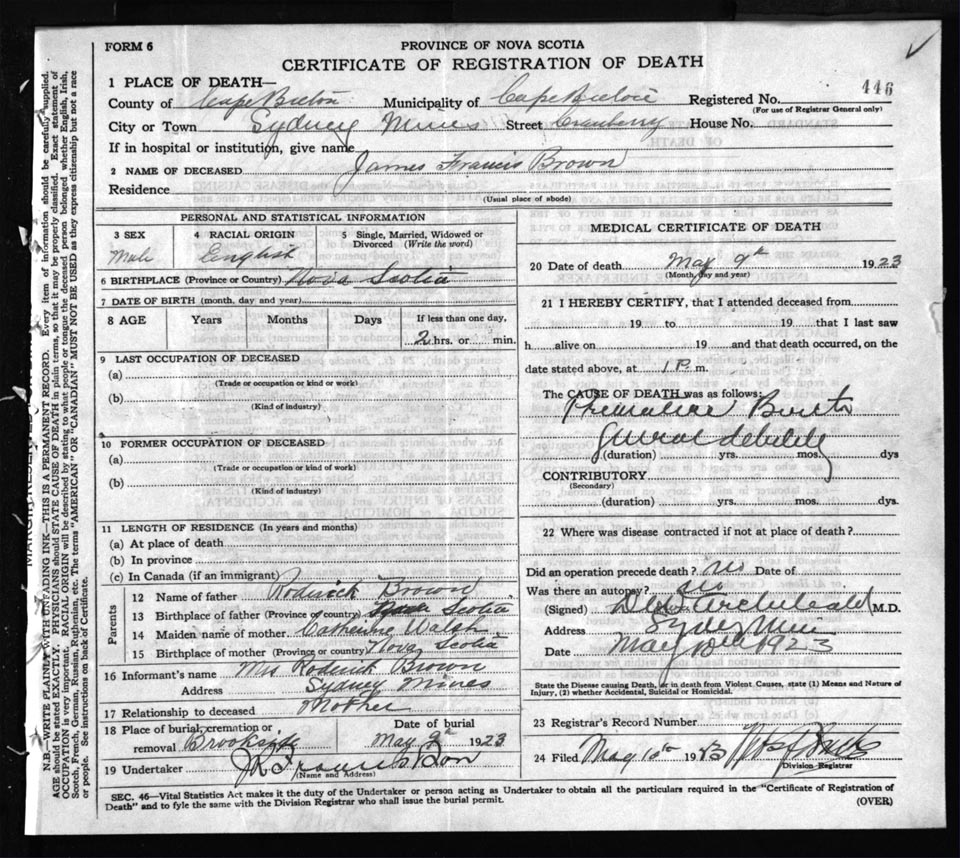 FORM 6
PROVINCE OF NOVA SCOTIA
CERTIFICATE OF REGISTRATION OF DEATH
446
1 PLACE OF DEATH—
County of Cape Breton Municipality of Cape Breton Registered No.
(For use of Registrar General only)
City or Town Sydney Mines Street Cranberry House No.
If in hospital or institution, give name
2 NAME OF DECEASED James Francis Brown
Residence
(Usual place of abode)
PERSONAL AND STATISTICAL INFORMATION
3 SEX Male
4 RACIAL ORIGIN English
5 Single, Married, Widowed or Divorced (Write the word)
6 BIRTHPLACE (Province or Country) Nova Scotia
7 DATE OF BIRTH (month, day and year)
8 AGE Years Months Days If less than one day, 2 hrs. or min.
9 LAST OCCUPATION OF DECEASED
(a)
(Trade or occupation or kind or work)
(b)
(Kind of industry)
10 FORMER OCCUPATION OF DECEASED
(a)
(Trade or occupation or kind of work)
(b)
(Kind of industry)
11 LENGTH OF RESIDENCE (In years and months)
(a) At place of death
(b) In province
(c) In Canada (if an immigrant)
Parents
12 Name of father Roderick Brown
13 Birthplace of father (Province or country) Nova Scotia
14 Maiden name of mother Catherine Walsh
15 Birthplace of mother (Province or country) Nova Scotia
16 Informant's name Mrs Roderick Brown
Address Sydney Mines
17 Relationship to deceased Mother
18 Place of burial, cremation or removal Brookside
Date of burial May 9th 1923
19 Undertaker J R Francis & Son
(Name and Address)
MEDICAL CERTIFICATE OF DEATH
20 Date of death May 9th 1923
(Month, day and year)
21 I HEREBY CERTIFY, that I attended deceased from
19 to 19 that I last saw
h alive on 19 and that death occurred, on the
date stated above, at 1 P m.
The CAUSE OF DEATH was as follows:
Premature Birth
General debility
(duration) yrs. mos. dys
CONTRIBUTORY
(Secondary)
(duration) yrs. mos. dys.
22 Where was disease contracted if not at place of death?
Did an operation precede death? no Date of
Was there an autopsy? no
(Signed) Archibald M.D.
Address Sydney Mines
Date May 1923
State the Disease causing Death, or in death from Violent Causes, state (1) Means and Nature of
Injury, (2) whether Accidental, Suicidal or Homicidal.
23 Registrar's Record Number
24 Filed May 10th 1923
Division Registrar
SEC. 46—Vital Statistics Act makes it the duty of the Undertaker or person acting as Undertaker to obtain all the particulars required in the "Certificate of Registration of
Death" and to fyle the same with the Division Registrar who shall issue the burial permit.
(OVER)
N.B.—WRITE PLAINLY WITH UNFADING INK—THIS IS A PERMANENT RECORD. Every item of information should be carefully supplied.
AGE should be stated EXACTLY. PHYSICIANS should STATE CAUSE OF DEATH in plain terms, so that it may be properly classified. Exact statement of
OCCUPATION is very important. RACIAL ORIGIN will be described by stating to what people or tongue the deceased person belonged whether English, Irish,
Scotch, French, German, Russian, Ruthenian, etc. The terms "AMERICAN" OR "CANADIAN" MUST NOT BE USED as they express citizenship but not a race
or people. See instructions on back of Certificate.